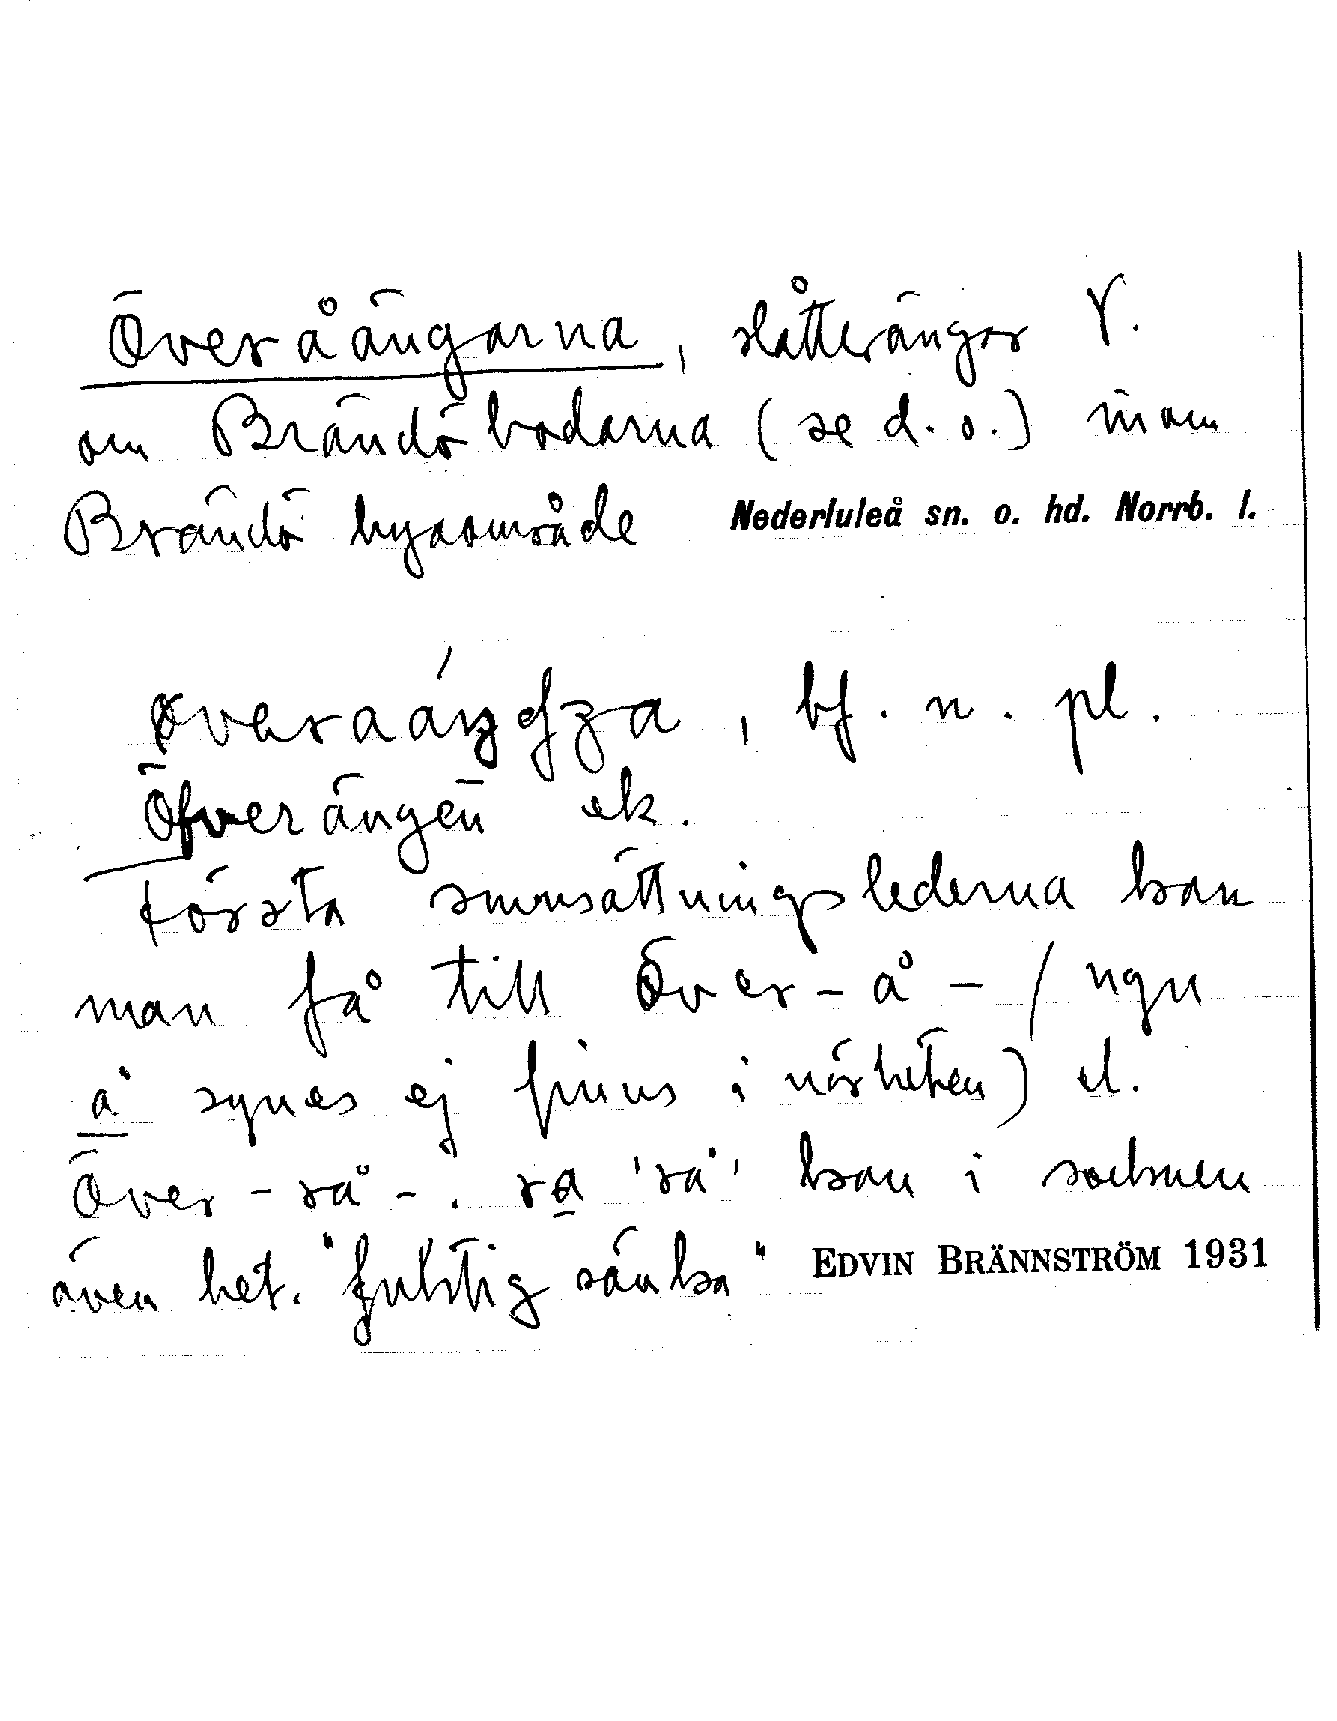 Överåängarna, slåtterängar V.
om Brändöbodarna (se d. o.) inom
Brändö byaområde Nederluleå sn. o. hd. Norrb. l.
, bf. n. pl.
Öfverängen ek.
Första smnsättningslederna kan
man få till Över-å- (ngn
å synes ej finns i närheten) el.
Över-rå-. ra 'rå' kan i socknen
även bet. "fuktig sänka" EDVIN BRÄNNSTRÖM 1931